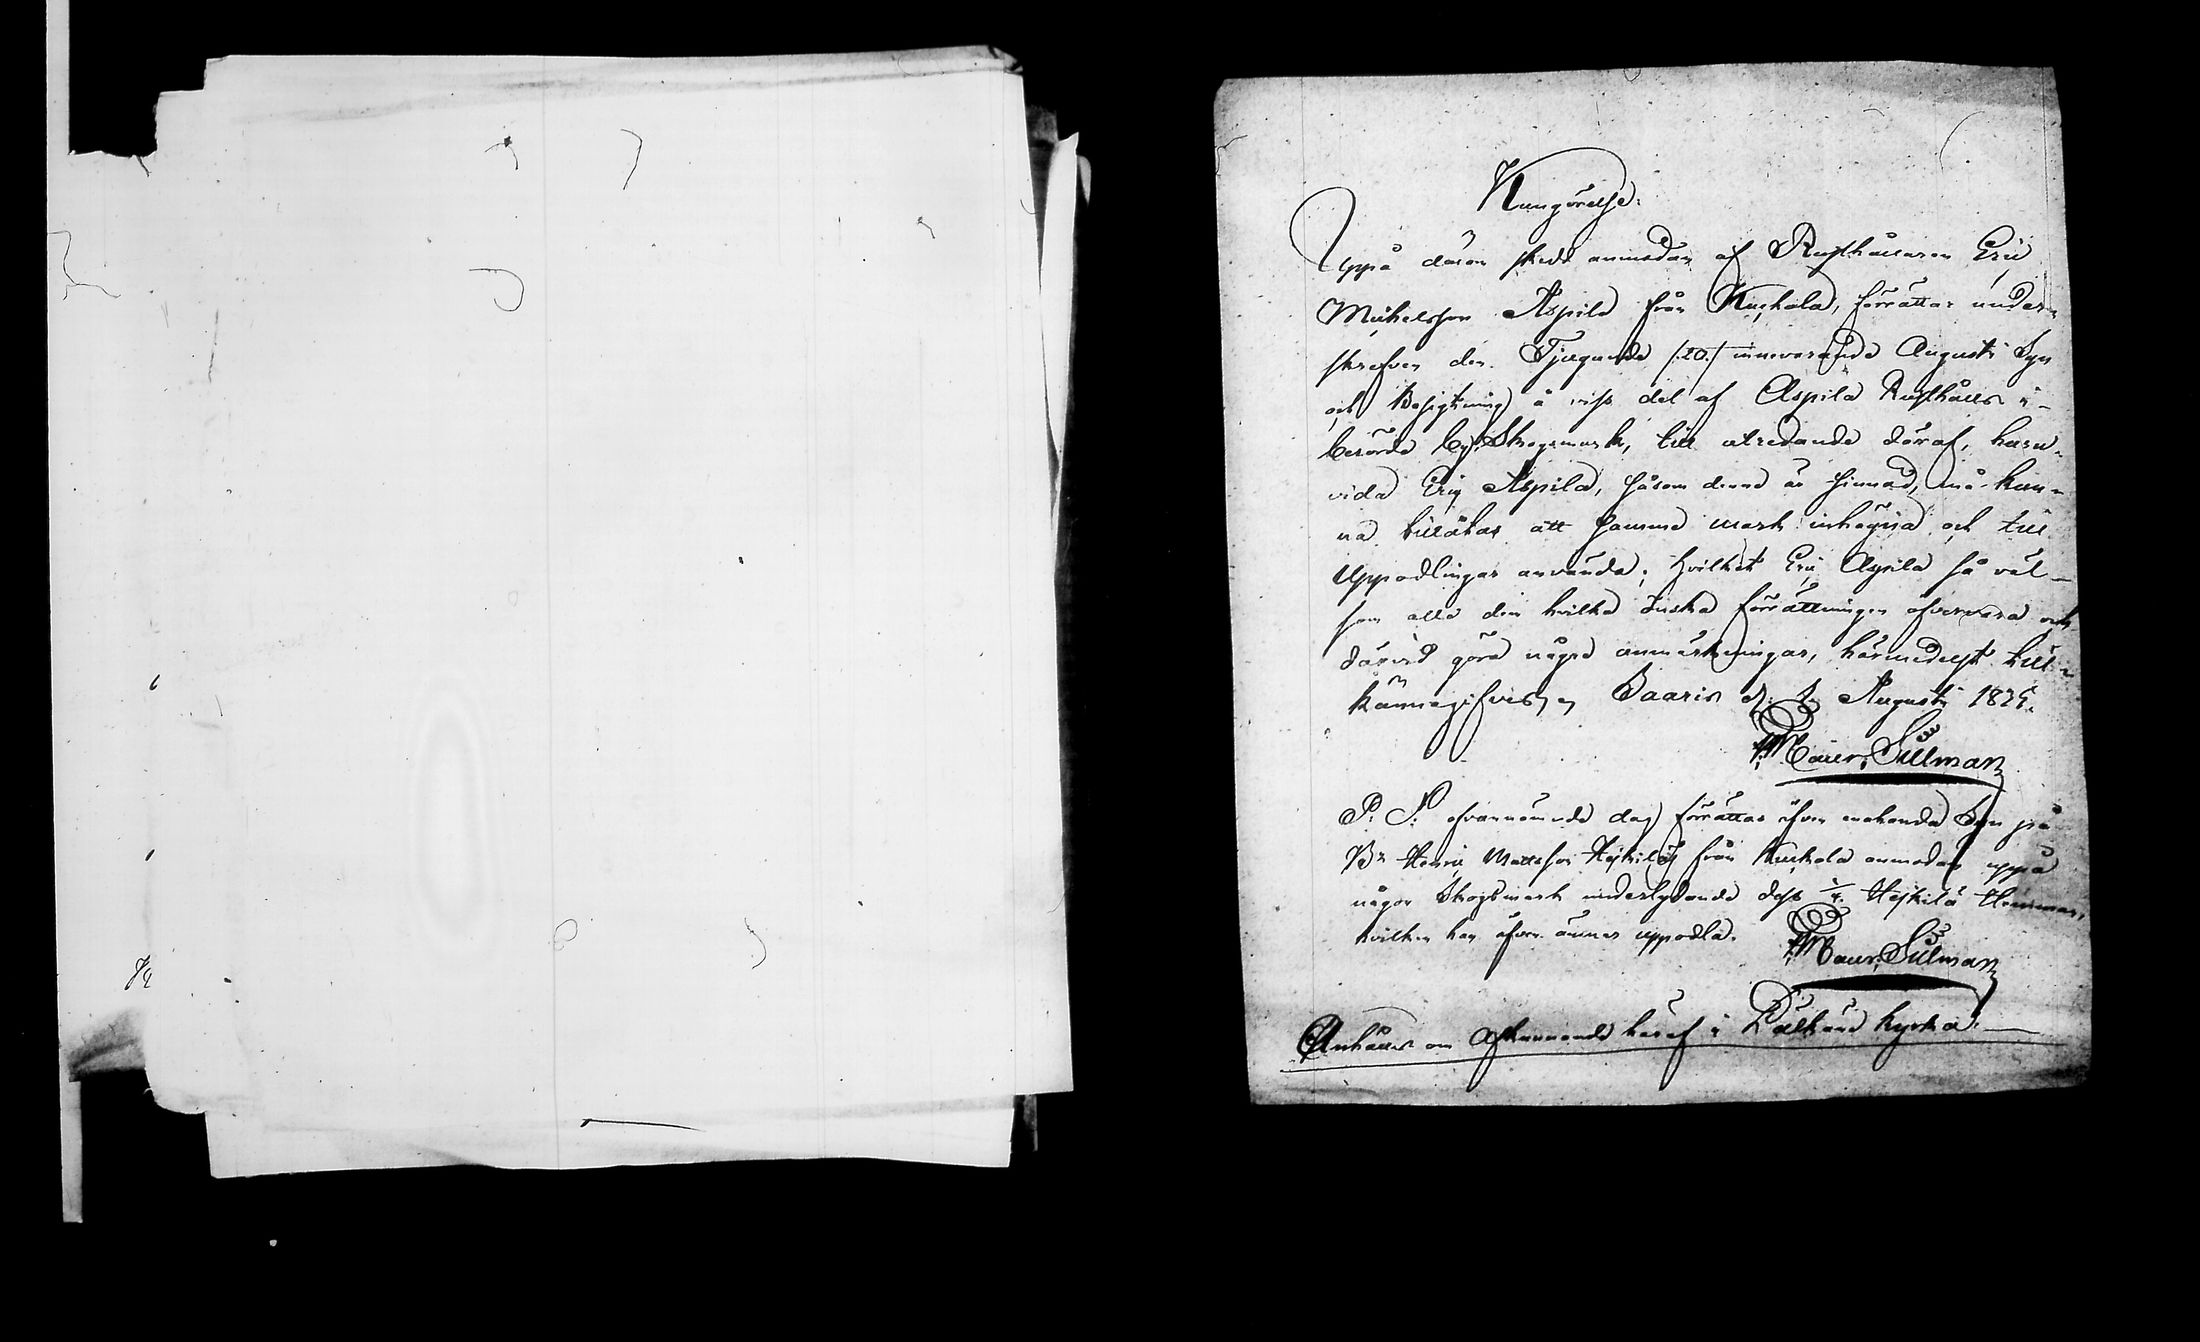 Kungörelse.
Uppå derom skedd anmodan af Rusthållaren Eric
Michelsson Aspila från Kuckola, förrättar under-
skrefven den Tjugunde /:20:/ innevarande Augusti Syn
och Besigtning å viss del af Aspila Rusthålls i
berörde by Skogsmark, till utredande deraf, huru-
vida Eric Aspila, såsom denne är sinnad, må kun-
na tillåtas att samma mark inhägna och till
Uppodlingar använda; hvilket Eric Aspila så väl
som alla dem hvilka önska förrättningen öfvervara och
dervid göra några anmärkningar, härmedelst till-
kännagifves, Saaris d. Augusti
Sillman
P. S. ofvannämnde dag förrättas äfven enahanda Syn på
Bn Henric Mattsson Hejkiläs från Kuckola anmodan uppå
någon Skogsmark underlydande dess Hejkilä Hemman,
hvilken han äfven ämnar uppodla.
Sillman
Anhålles om afkunnande häraf i Pälkäne kyrka.